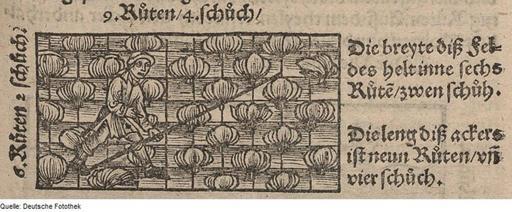 9. Růten/4. schůch/
6. Růten 2 schůch/
Die breyte diß Fel-
des helt inne sechs
Růtē/zwen schůh.
Die leng diß ackers
ist neun Růten/vñ
vier schůch.
Quelle: Deutsche Fotothek